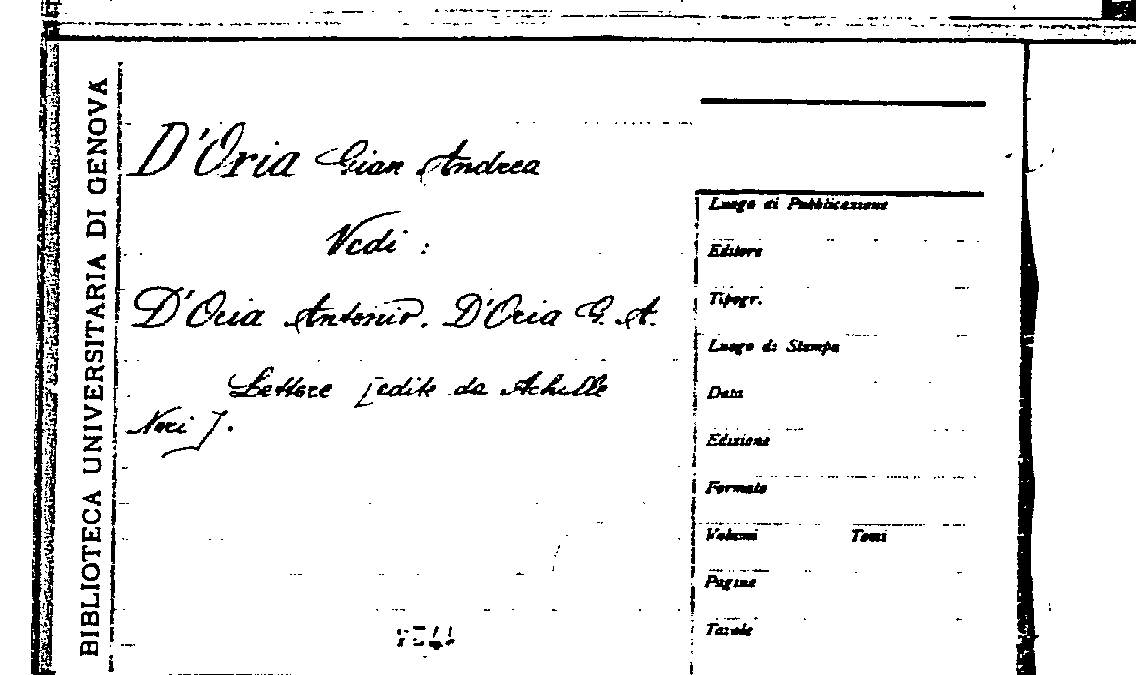 BIBLIOTECA UNIVERSITARIA DI GENOVA
D'Oria Gian Andrea
Vedi :
D'Oria Antonio. D'Oria G. A.
Lettere [edite da Achille
Neri].
Luogo di Pubblicazione
Editore
Tipogr.
Luogo di Stampa
Data
Edizione
Formato
Volumi Tomi
Pagine
Tavole